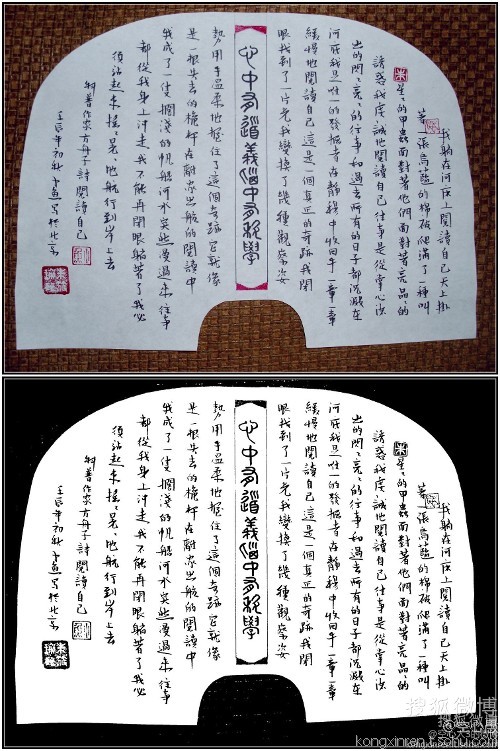 我躺在河床上閱讀自己天上掛
著一張烏藍的棉被爬滿了一種叫
星々的甲蟲面對著他們面對著亮晶々的
誘惑我虔誠地閱讀自己往事是從掌心流
出的閃々亮々的行事和過去所有的日子都沉澱在
河底我是唯一的發掘者在靜穆中收回手一章一章
緩慢地閱讀自己這是一個真正的奇跡我閉
眼找到了一片光我變換了幾種觀察姿
心中有道義腦中有科學
勢用手溫柔地握住了這個奇跡它就像
是一根失去的橫杆在離家出航的閱讀中
我成了一隻擱淺的帆船河水突然漫過來往事
都從我身上走我不能再閉眼躺著了我必
須站起來搖々晃々地航行到岸上去
科普作家方舟子詩閱讀自己
壬辰年初秋寫於北京
我躺在河床上閱讀自己天上掛
著一張烏藍的棉被爬滿了一種叫
星々的甲蟲面對著他們面對著亮晶々的
誘惑我虔誠地閱讀自己往事是從掌心流
出的閃々亮々的行事和過去所有的日子都沉澱在
河底我是唯一的發掘者在靜穆中收回手一章一章
緩慢地閱讀自己這是一個真正的奇跡我閉
眼找到了一片光我變換了幾種觀察姿
心中有道義腦中有科學
勢用手溫柔地握住了這個奇跡它就像
是一根失去的橫杆在離家出航的閱讀中
我成了一隻擱淺的帆船河水突然漫過來往事
都從我身上走我不能再閉眼躺著了我必
須站起來搖々晃々地航行到岸上去
科普作家方舟子詩閱讀自己
壬辰年初秋寫於北京
搜狐微博
kongxinren.t.sohu.com